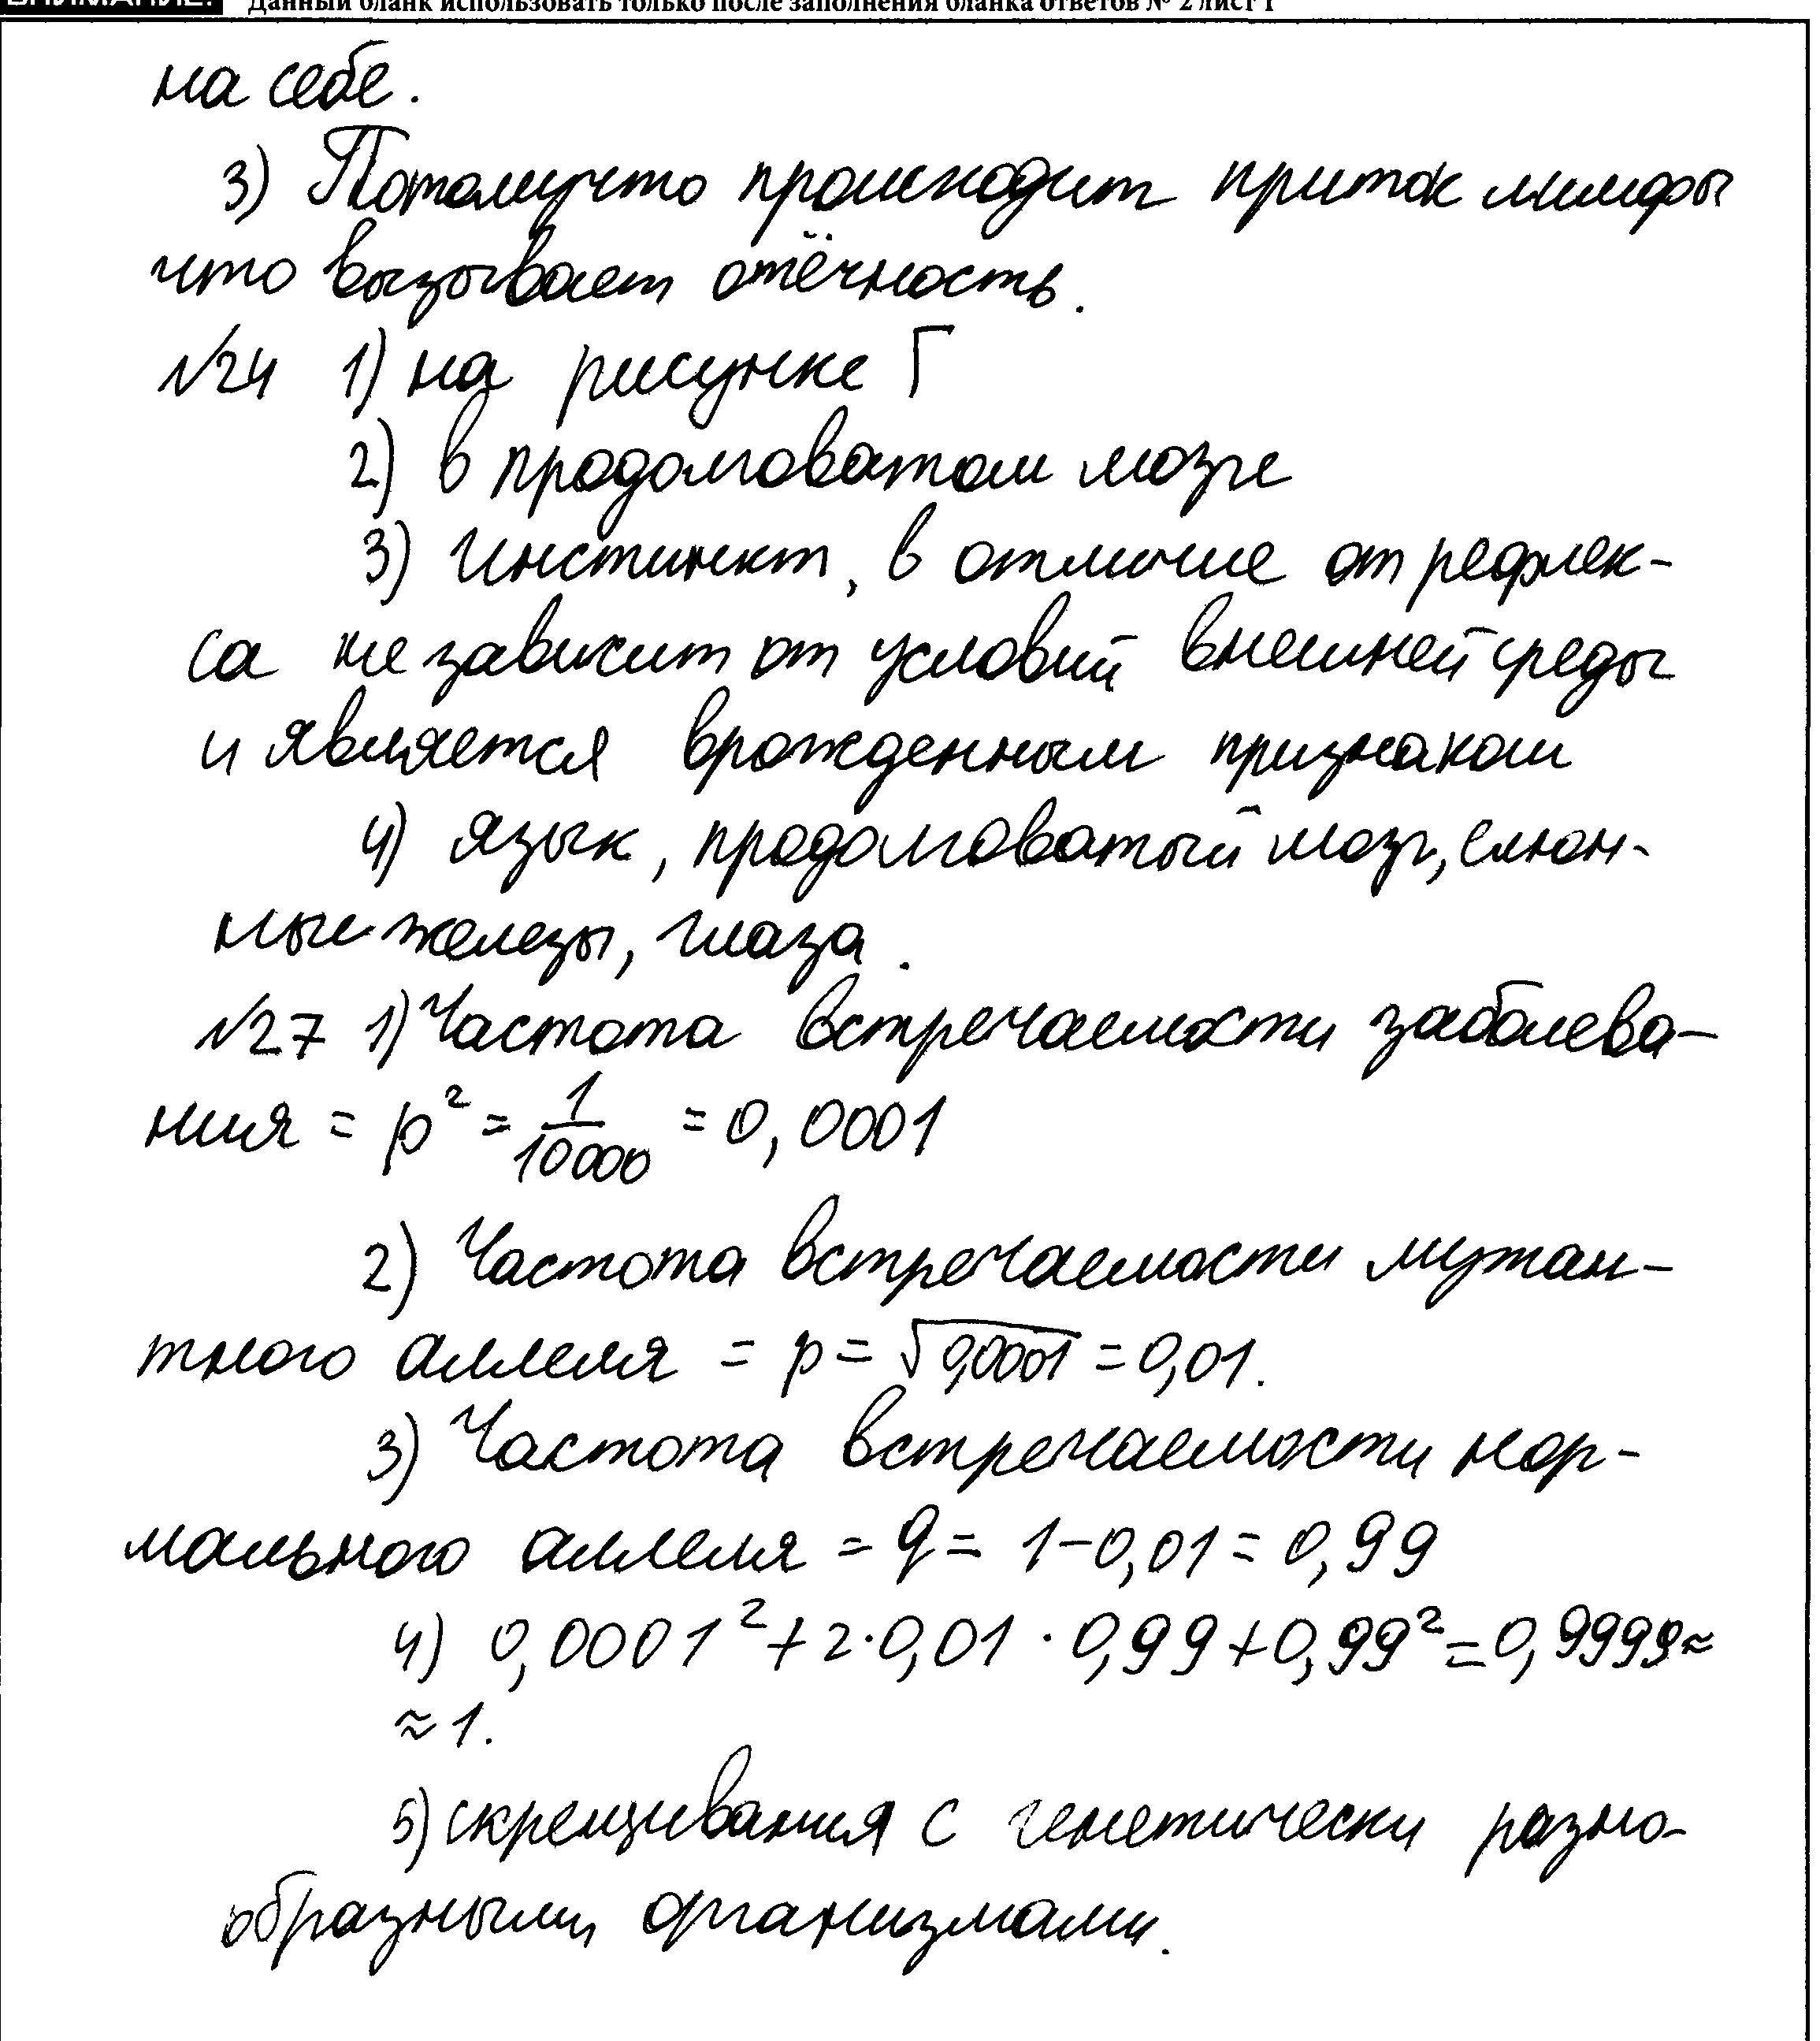 ВНИМАНИЕ! Данный бланк использовать только после заполнения бланка ответов № 2 лист 1
на себе.
3) Потомучто происходит приток лимфы
что вызывает отёчность.
№24 1) на рисунке Г
2) в продолговатом мозге
3) Инстинкт, в отличие от рефлек-
са не зависит от условий внешней среды
и является врожденным признаком
4) язык, продолговатый мозг, слюн-
ные железы, глаза.
№27 1) Частота встречаемости заболева-
ния = p² = 1/10000 = 0,0001
2) Частота встречаемости мутан-
тного аллеля = p = √0,0001 = 0,01.
3) Частота встречаемости нор-
мального аллеля = q = 1-0,01 = 0,99
4) 0,0001² + 2·0,01 · 0,99 + 0,99² = 0,9999 ≈
≈ 1.
5) скрещивания с генетически разно-
образными организмами.